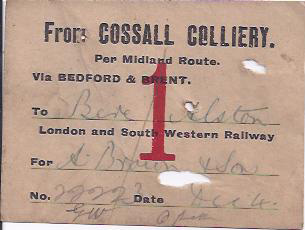 From COSSALL COLLIERY.
Per Midland Route.
Via BEDFORD & BRENT.
1
To Bere Alston
London and South Western Railway
For A. Brown & Son
No. Date